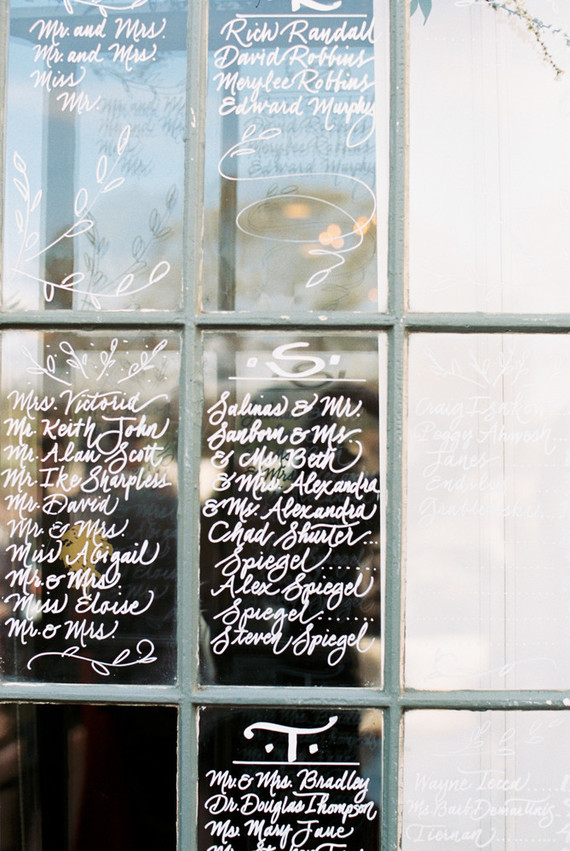 Mr. and Mrs.
Mr. and Mrs.
Miss
Mr.
R
Rich Randall
David Robbins
Merylee Robbins
Edward Murphy
Mrs. Victoria
Mr. Keith John
Mr. Alan Scott
Mr. Ike Sharpless
Mr. David
Mr. & Mrs.
Miss Abigail
Mr. & Mrs.
Miss Eloise
Mr. & Mrs.
.S.
Salinas & Mr.
Sanborn & Ms.
& Ms. Beth
& Mrs. Alexandra
& Ms. Alexandra
Chad Shurter...
Spiegel.......
Alex Spiegel
Spiegel.......
Steven Spiegel
.T.
Mr. & Mrs. Bradley
Dr. Douglas Thompson
Ms. Mary Jane
Craig
Peggy
James
Wayne Tecca.....
Ms. Barb Demartinis..
Tiernan